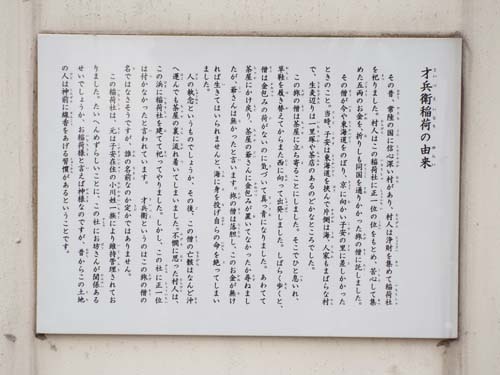 才兵衛稲荷の由来
その昔、常陸の国に信心深い村があり、村人は浄財を集めて稲荷社
を祀りました。村人はこの稲荷社に正一位の位をもとめ、苦心して集
めた五両のお金を、折りしも同国を通りかかった旅の僧に託しました。
その僧が今や東海道をのぼり、京に向かい子安の里に差しかかった
ときのこと。当時、子安は東海道を挟んで片側は海、人家もまばらな村
で、生麦辺りは一里塚や茶店のあるのどかなところでした。
この旅の僧は茶屋に立ち寄ることにしました。そこでひと息いれ、
草鞋を履き替えてからまた西に向って出発しました。しばらく歩くと、
僧は金包みの荷がないのに気づいて真っ青になりました。あわてて
茶屋にかけ戻り、茶屋の爺さんに金包みが置いてなかったか尋ねまし
たが、爺さんは無かったと言います。旅の僧は落胆し、このお金が無け
れば生きてはいられませんと、海に身を投げ自らの命を絶ってしまい
ました。
人の執念というものでしょうか、その後、この僧の亡骸はなんど沖
へ運んでも茶屋の裏に流れ着いてしまいました。不憫に思った村人は、
この浜に稲荷社を建てて祀ってやりました。しかし、この社に正一位
は付かなかったと言われています。 才兵衛というのはこの旅の僧の
名ではなさそうですが、誰の名前なのか定かではありません。
この稲荷社は、元は子安在住の小川姓一族により維持管理されてお
りました。たいへんめずらしいことに、この社にお坊さんが関係ある
せいでしょうか、お稲荷様と言えば神様なのですが、昔からこの土地
の人は神前に線香をあげる習慣があるということです。